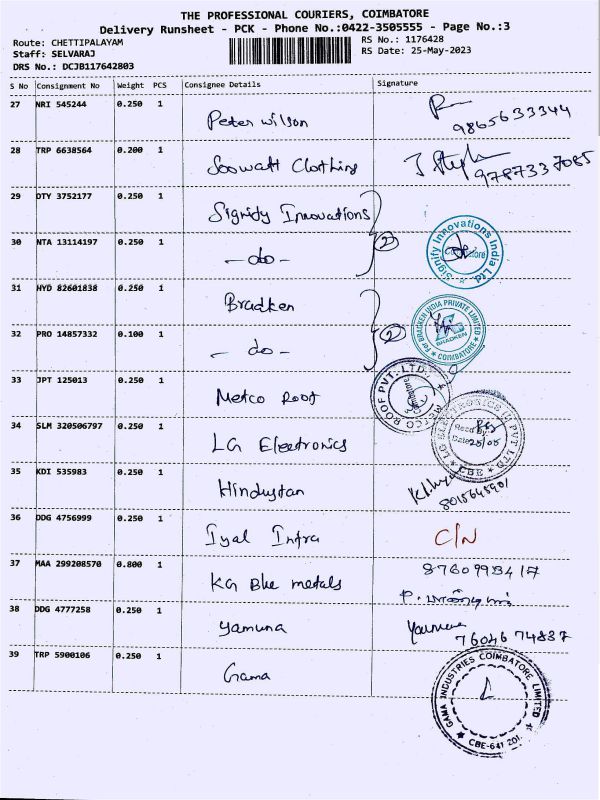 THE PROFESSIONAL COURIERS, COIMBATORE
Delivery Runsheet - PCK - Phone No.:0422-3505555 - Page No.:3
Route: CHETTIPALAYAM
Staff: SELVARAJ
DRS No.: DCJB117642803
RS No.: 1176428
RS Date: 25-May-2023
S No Consignment No Weight PCS Consignee Details Signature
27 NRI 545244 0.250 1 Peter Wilson 9865633344
28 TRP 6638564 0.200 1 Soowatt Clothing 9787337085
29 DTY 3752177 0.250 1 Signify Innovations
30 NTA 13114197 0.250 1 - do - 2 Signify Innovations India Ltd
31 HYD 82601838 0.250 1 Bradken For BRADKEN INDIA PRIVATE LIMITED BRADKEN COIMBATORE
32 PRO 14857332 0.100 1 - do - 2
33 JPT 125013 0.250 1 Metco Roof METCO ROOF PVT. LTD.
34 SLM 320506797 0.250 1 LG Electronics LG ELECTRONICS PVT LTD Recd By Date 25/05 CBE
35 KDI 535983 0.250 1 Hindustan 8015645901
36 DDG 4756999 0.250 1 Iyal Infra C/N
37 MAA 299208570 0.800 1 KG Blue metals 8760993417
38 DDG 4777258 0.250 1 Yamuna Yamuna 7604674837
39 TRP 5900106 0.250 1 Gama GAMA INDUSTRIES COIMBATORE LIMITED CBE-641 201.